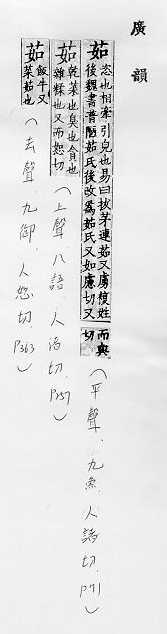 廣韻
茹 恣也相牽引皃也易曰拔茅連茹又虜複姓
後魏書普陋茹氏後改爲茹氏又如慮切又
而與切
(平聲，九魚，人諸切，P71)
茹 乾菜也臭也貪也
雜糅也又而恕切
(上聲，八語，人渚切，P257)
茹 飯牛又
菜茹也
(去聲，九御，人恕切，P363)